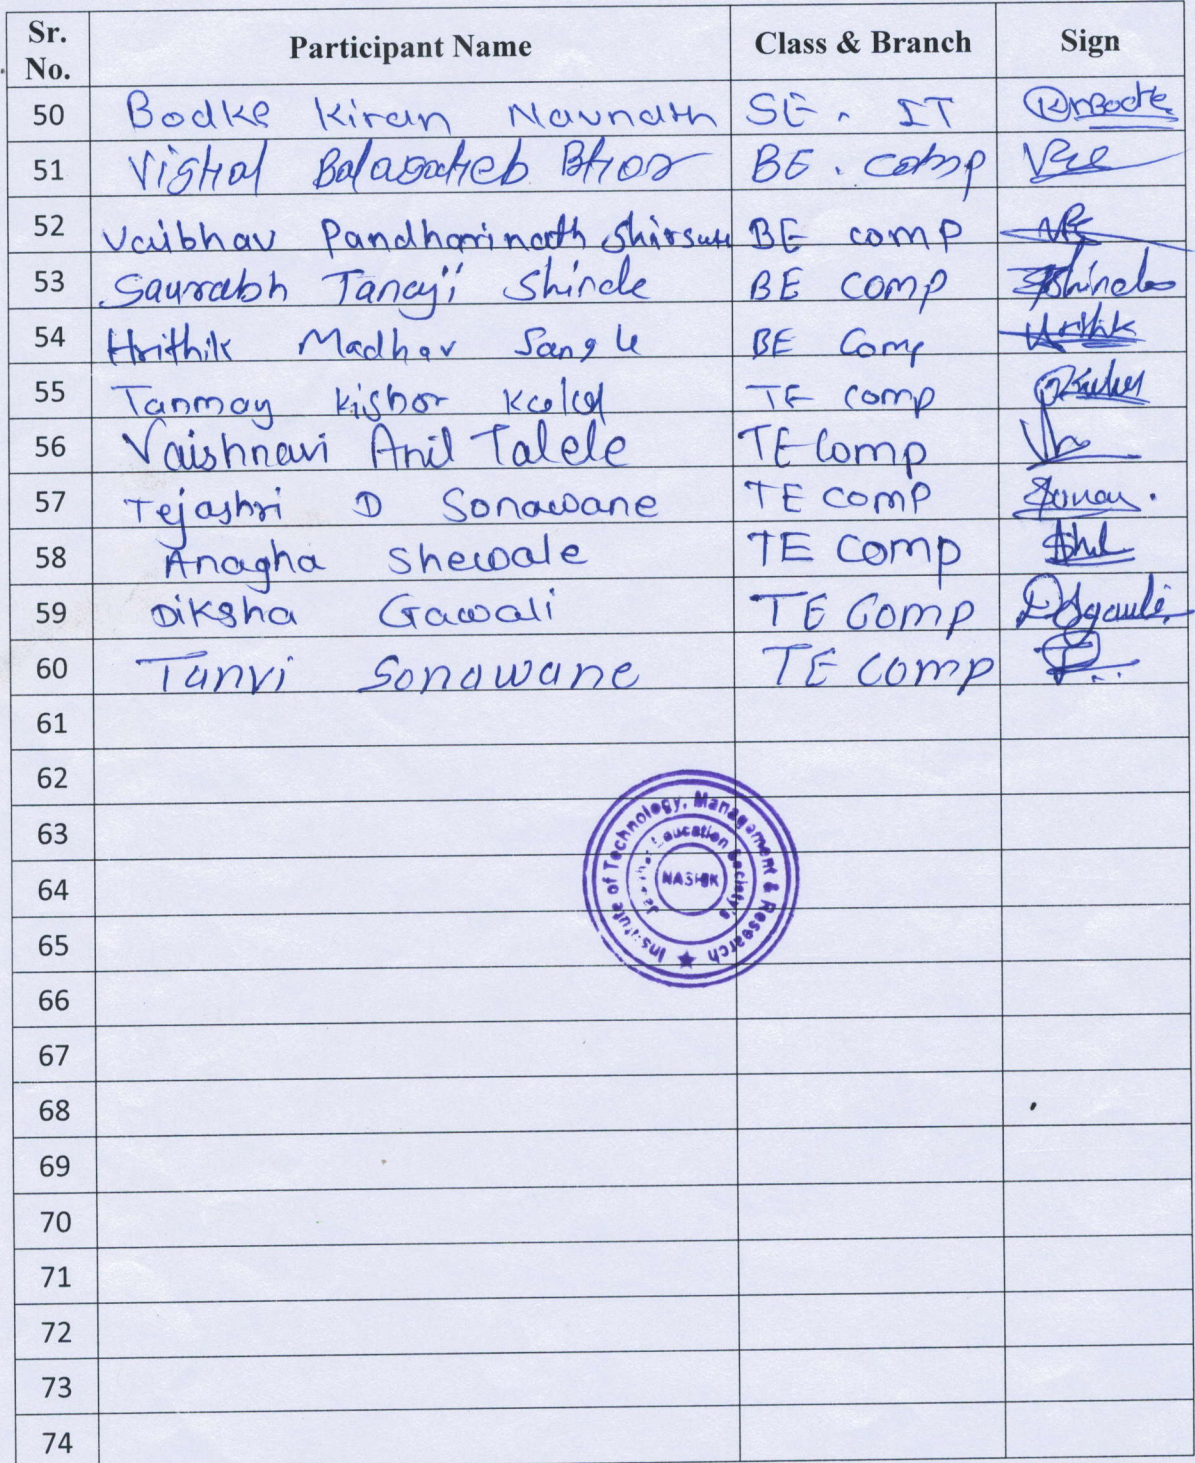 Sr. No. Participant Name Class & Branch Sign
50 Bodke Kiran Navnath SE. IT
51 Vishal Balasaheb Bhor BE. comp
52 Vaibhav Pandharinath Shirsate BE comp
53 Saurabh Tanaji Shinde BE comp Shinde
54 Hrithik Madhav Sangle BE Comp Hrithik
55 Tanmay Kishor TE comp
56 Vaishnavi Anil Talele TE Comp
57 Tejashri D Sonawane TE comp
58 Anagha Shewale TE comp
59 Diksha Gawali TE Comp
60 Tanvi Sonawane TE comp
61
62
63
64
65
66
67
68
69
70
71
72
73
74
Institute of Technology, Management & Research
Education Society's
NASHIK